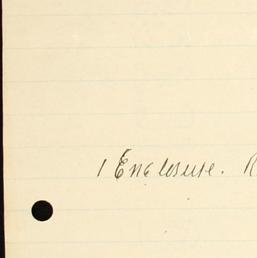 1 Enclosure.